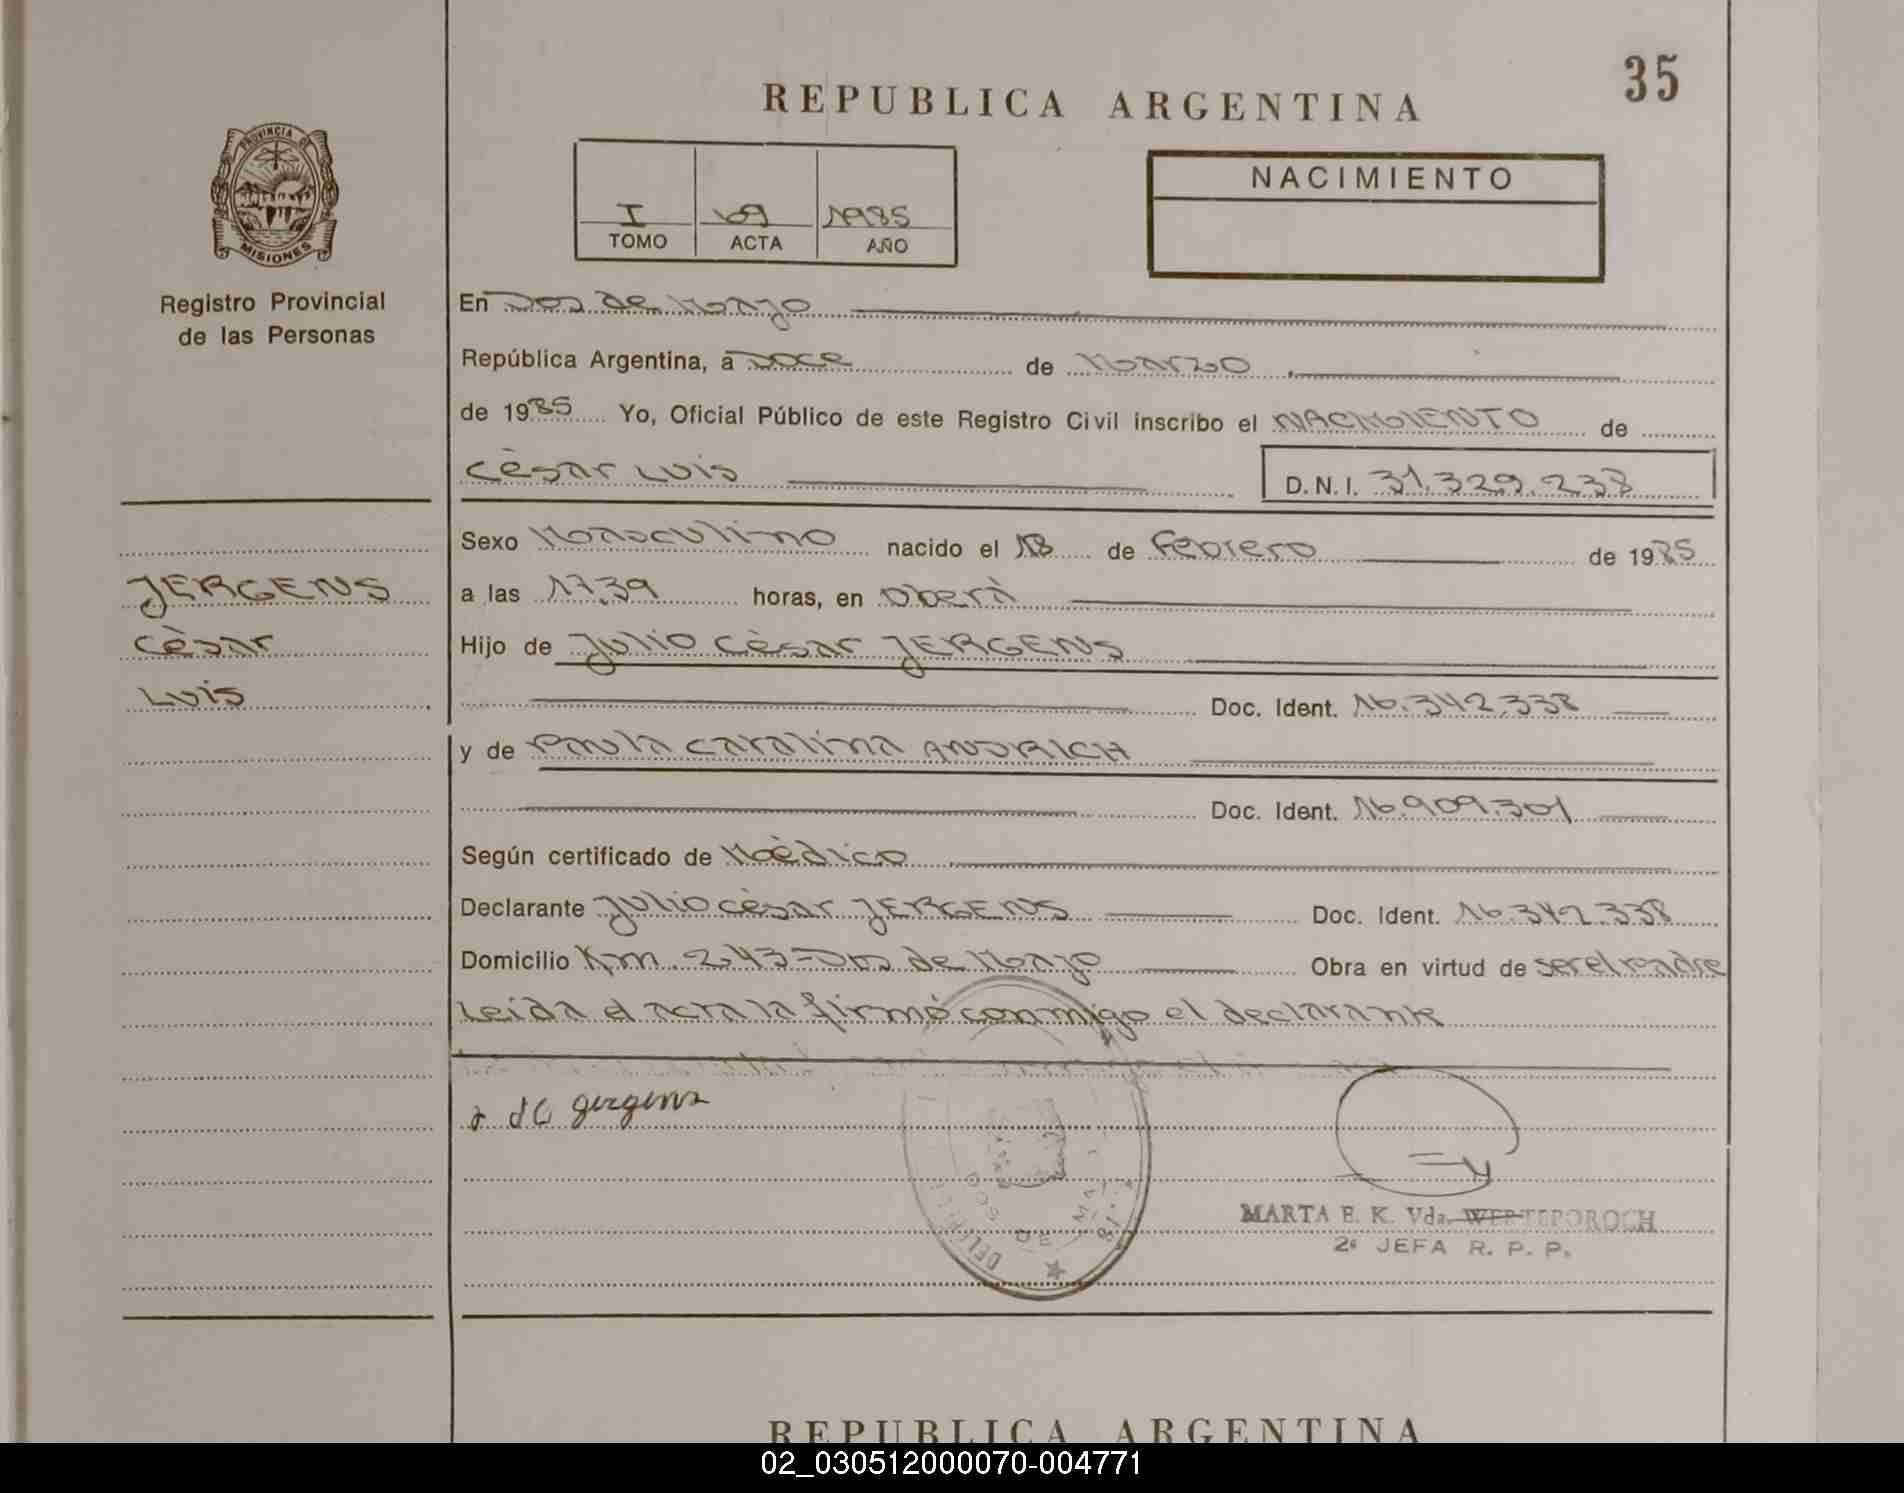 35
REPUBLICA ARGENTINA
PROVINCIA DE
MISIONES
Registro Provincial
de las Personas
I 69 1985
TOMO ACTA AÑO
NACIMIENTO
En Dos de Mayo
República Argentina, a Doce de Marzo
de 1985 Yo, Oficial Público de este Registro Civil inscribo el NACIMIENTO de
Cèsar Luis
D.N.I. 31.329.238
Sexo Masculino nacido el 18 de Febrero de 1985
JERGENS
a las 17.39 horas, en Oberà
Cèsar
Hijo de Julio Cèsar JERGENS
Luis
Doc. Ident. 16.342.338
y de Paula Caralina ANDRICH
Doc. Ident. 16.909.301
Según certificado de Mèdico
Declarante Julio Cèsar JERGENS Doc. Ident. 16.342.338
Domicilio Km. 243 - Dos de Mayo Obra en virtud de ser el padre
Leida el acta la firmó conmigo el declarante
gergens
DOS DE MAYO
MARTA E. K. Vda. WERTEPOROCH
2ª JEFA R. P. P.
REPUBLICA ARGENTINA
02_030512000070-004771